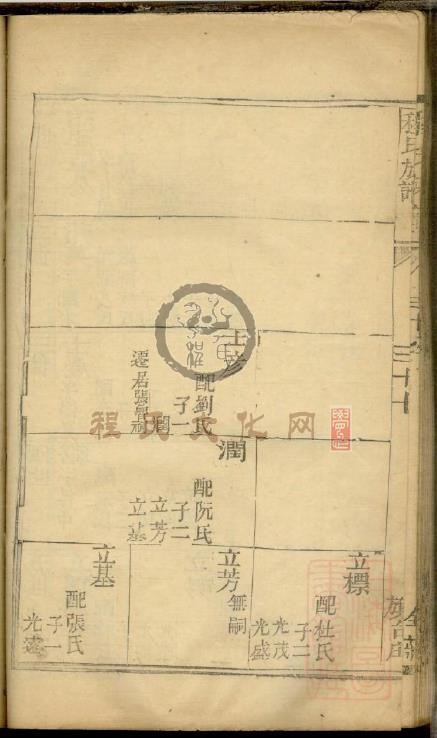 程氏族譜
士彥
配劉氏
子一
潤
遷居張
潤
配阮氏
子二
立芳
立基
立標
配杜氏
子二
光茂
光盛
立芳
無嗣
立基
配張氏
子一
光盛
程氏文化网